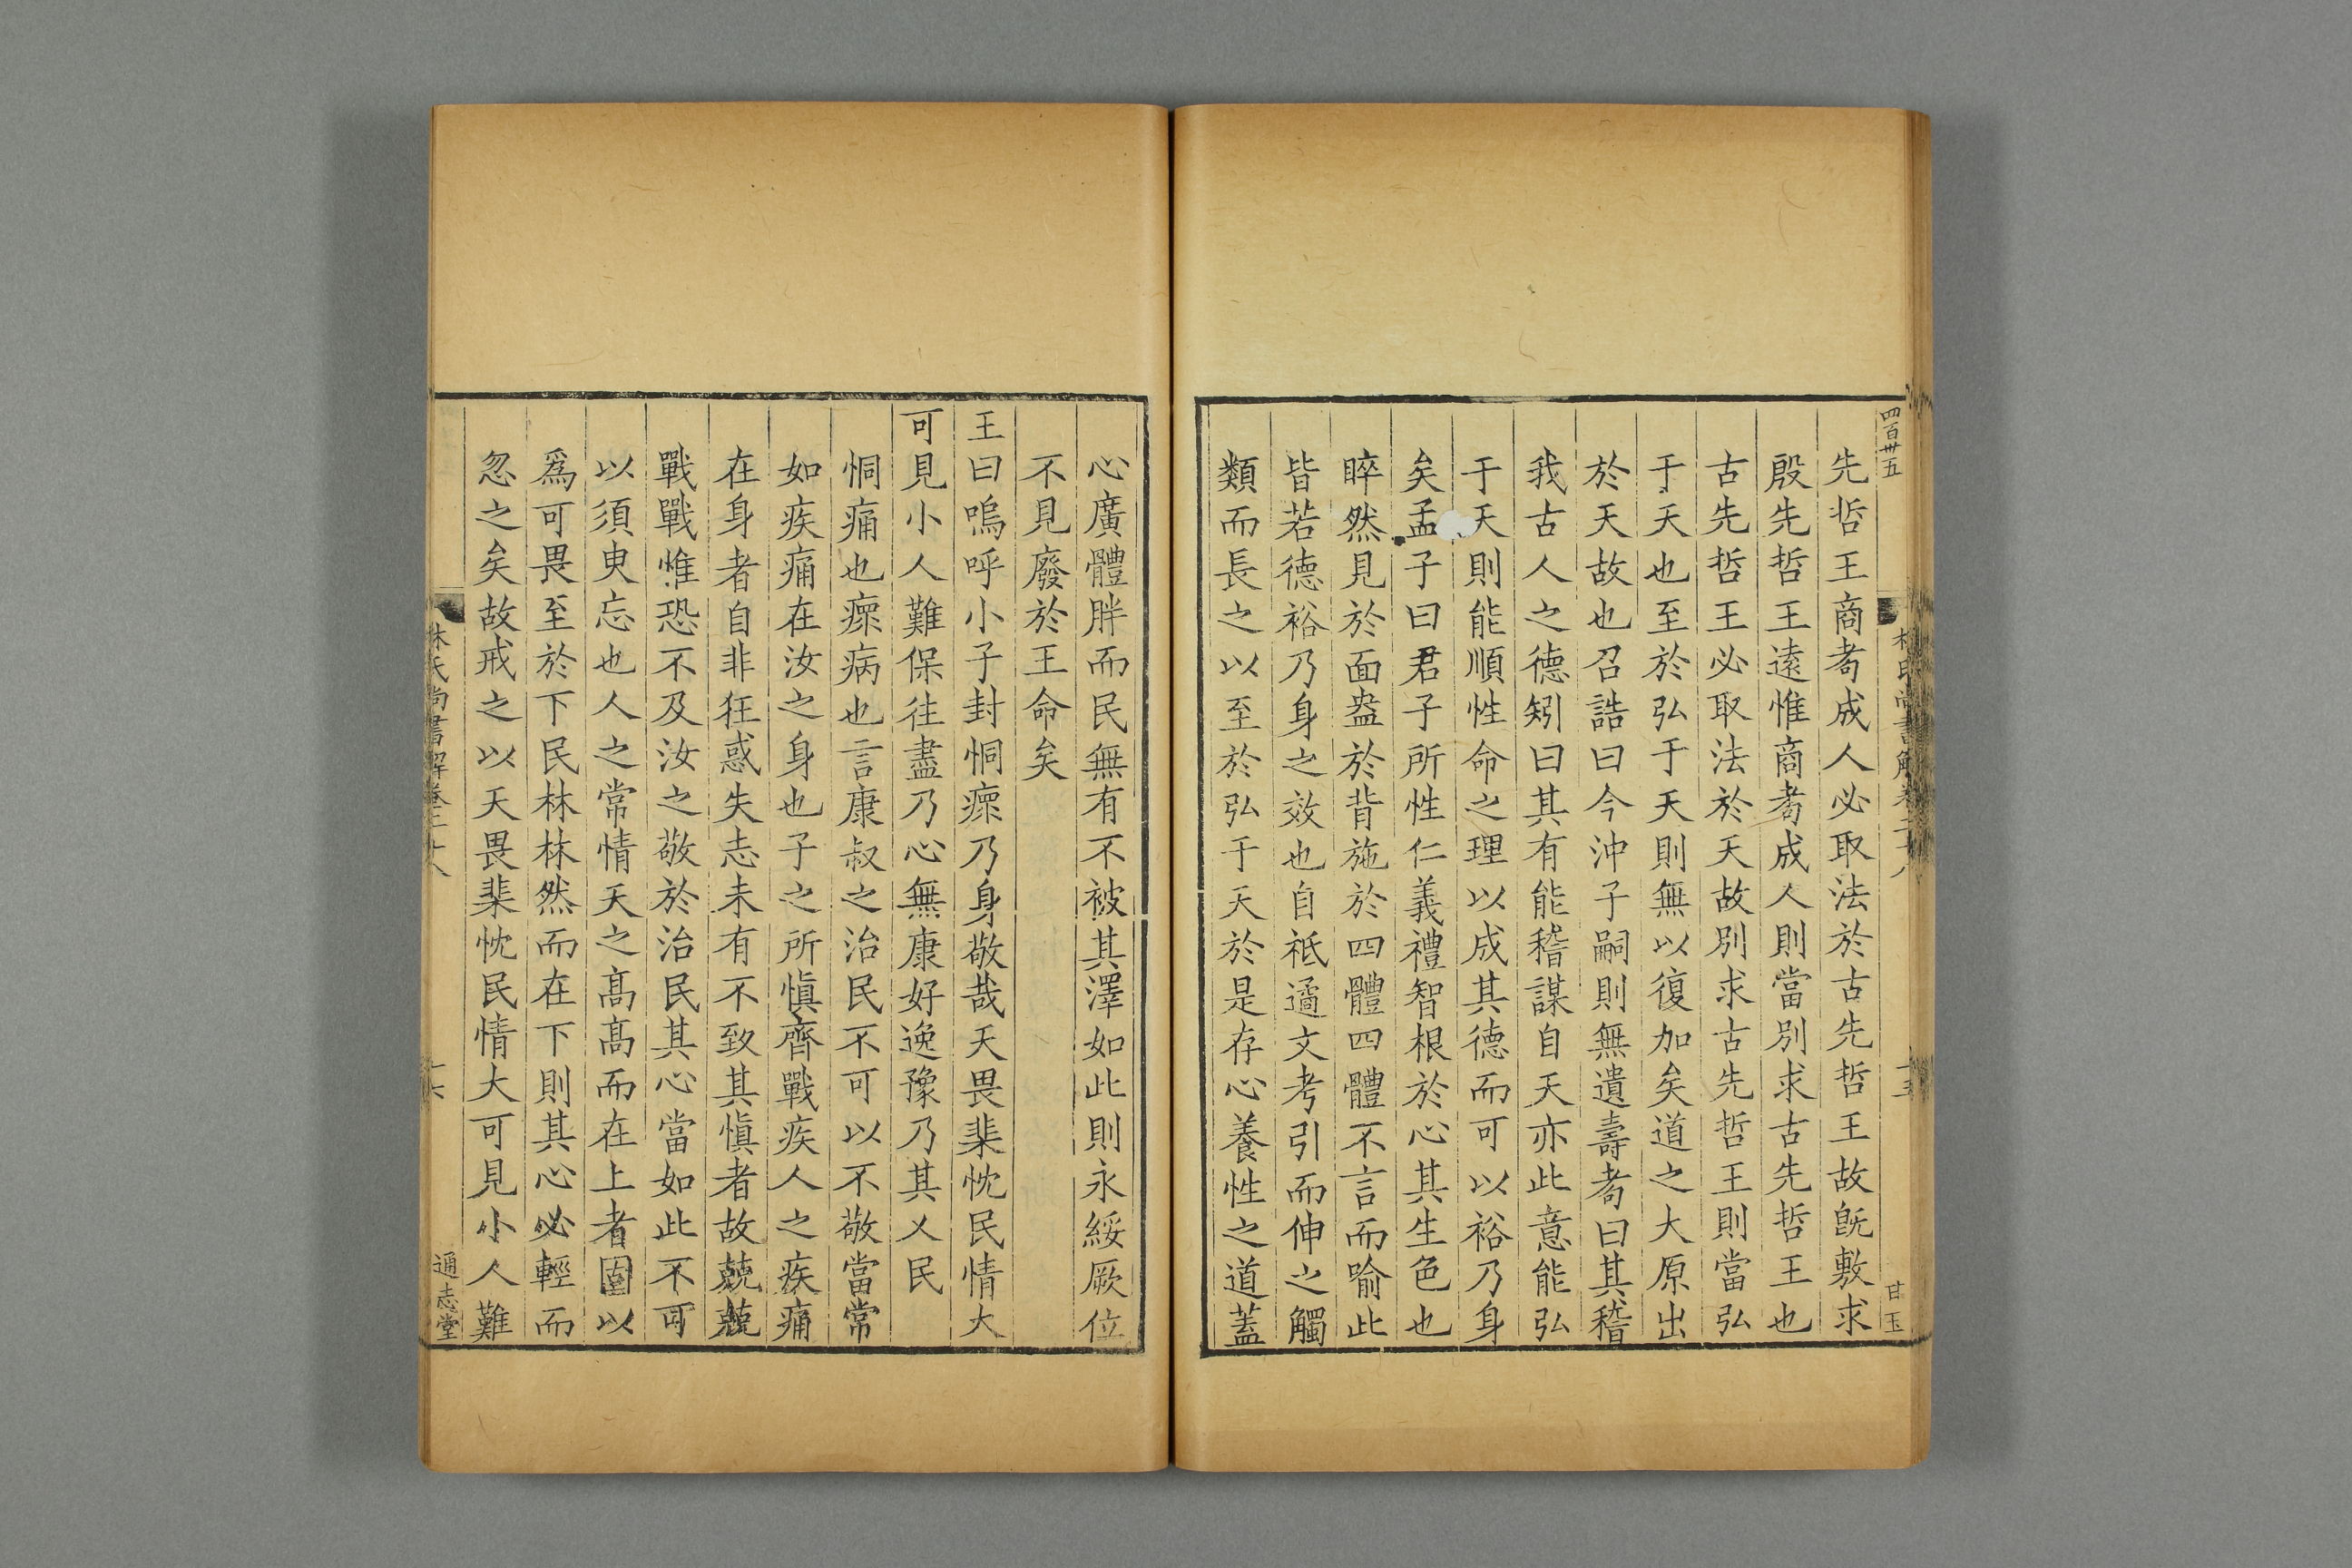 四百卅五
甘玉
先哲王商耇成人必取法於古先哲王故旣敷求
殷先哲王遠惟商耇成人則當別求古先哲王也
古先哲王必取法於天故別求古先哲王則當弘
于天也至於弘于天則無以復加矣道之大原出
於天故也召誥曰今沖子嗣則無遺壽耇曰其稽
我古人之德矧曰其有能稽謀自天亦此意能弘
于天則能順性命之理以成其德而可以裕乃身
矣孟子曰君子所性仁義禮智根於心其生色也
睟然見於面盎於背施於四體四體不言而喻此
皆若德裕乃身之效也自祗遹文考引而伸之觸
類而長之以至於弘于天於是存心養性之道蓋
心廣體胖而民無有不被其澤如此則永綏厥位
不見廢於王命矣
王曰嗚呼小子封恫瘝乃身敬哉天畏棐忱民情大
可見小人難保往盡乃心無康好逸豫乃其乂民
恫痛也瘝病也言康叔之治民不可以不敬當常
如疾痛在汝之身也子之所愼齊戰疾人之疾痛
在身者自非狂惑失志未有不致其愼者故兢兢
戰戰惟恐不及汝之敬於治民其心當如此不可
以須臾忘也人之常情天之高高而在上者固以
爲可畏至於下民林林然而在下則其心必輕而
忽之矣故戒之以天畏棐忱民情大可見小人難
林氏尚書解卷二十八
十六
通志堂